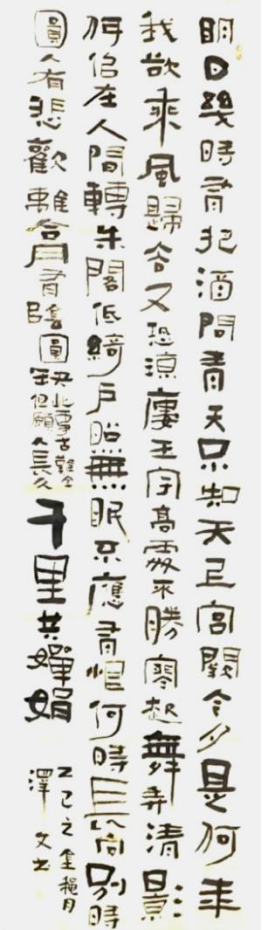 明月幾時有把酒問青天不知天上宮闕今夕是何年
我欲乘風歸去又恐瓊樓玉宇高處不勝寒起舞弄清影
何似在人間轉朱閣低綺戶照無眠不應有恨何時長向別時
圓人有悲歡離合月有陰圓缺此事古難全但願人長久千里共嬋娟
乙巳之金穐月
澤文书